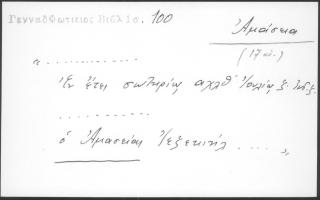 Γενναδ Φωτιειος Βιβλιο. 100
Ἀμάσεια
(17 αι.)
« ..........
Ἐν ἔτει σωτηρίῳ αχλθ Ἰουλίῳ ξ. Ἰνδ. ξ.
..........
ὁ Ἀμασείας Ἰεζεκιήλ .... »